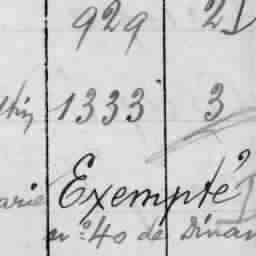 929 21
1333 3
arie Exempté
nº 40 de Dinan